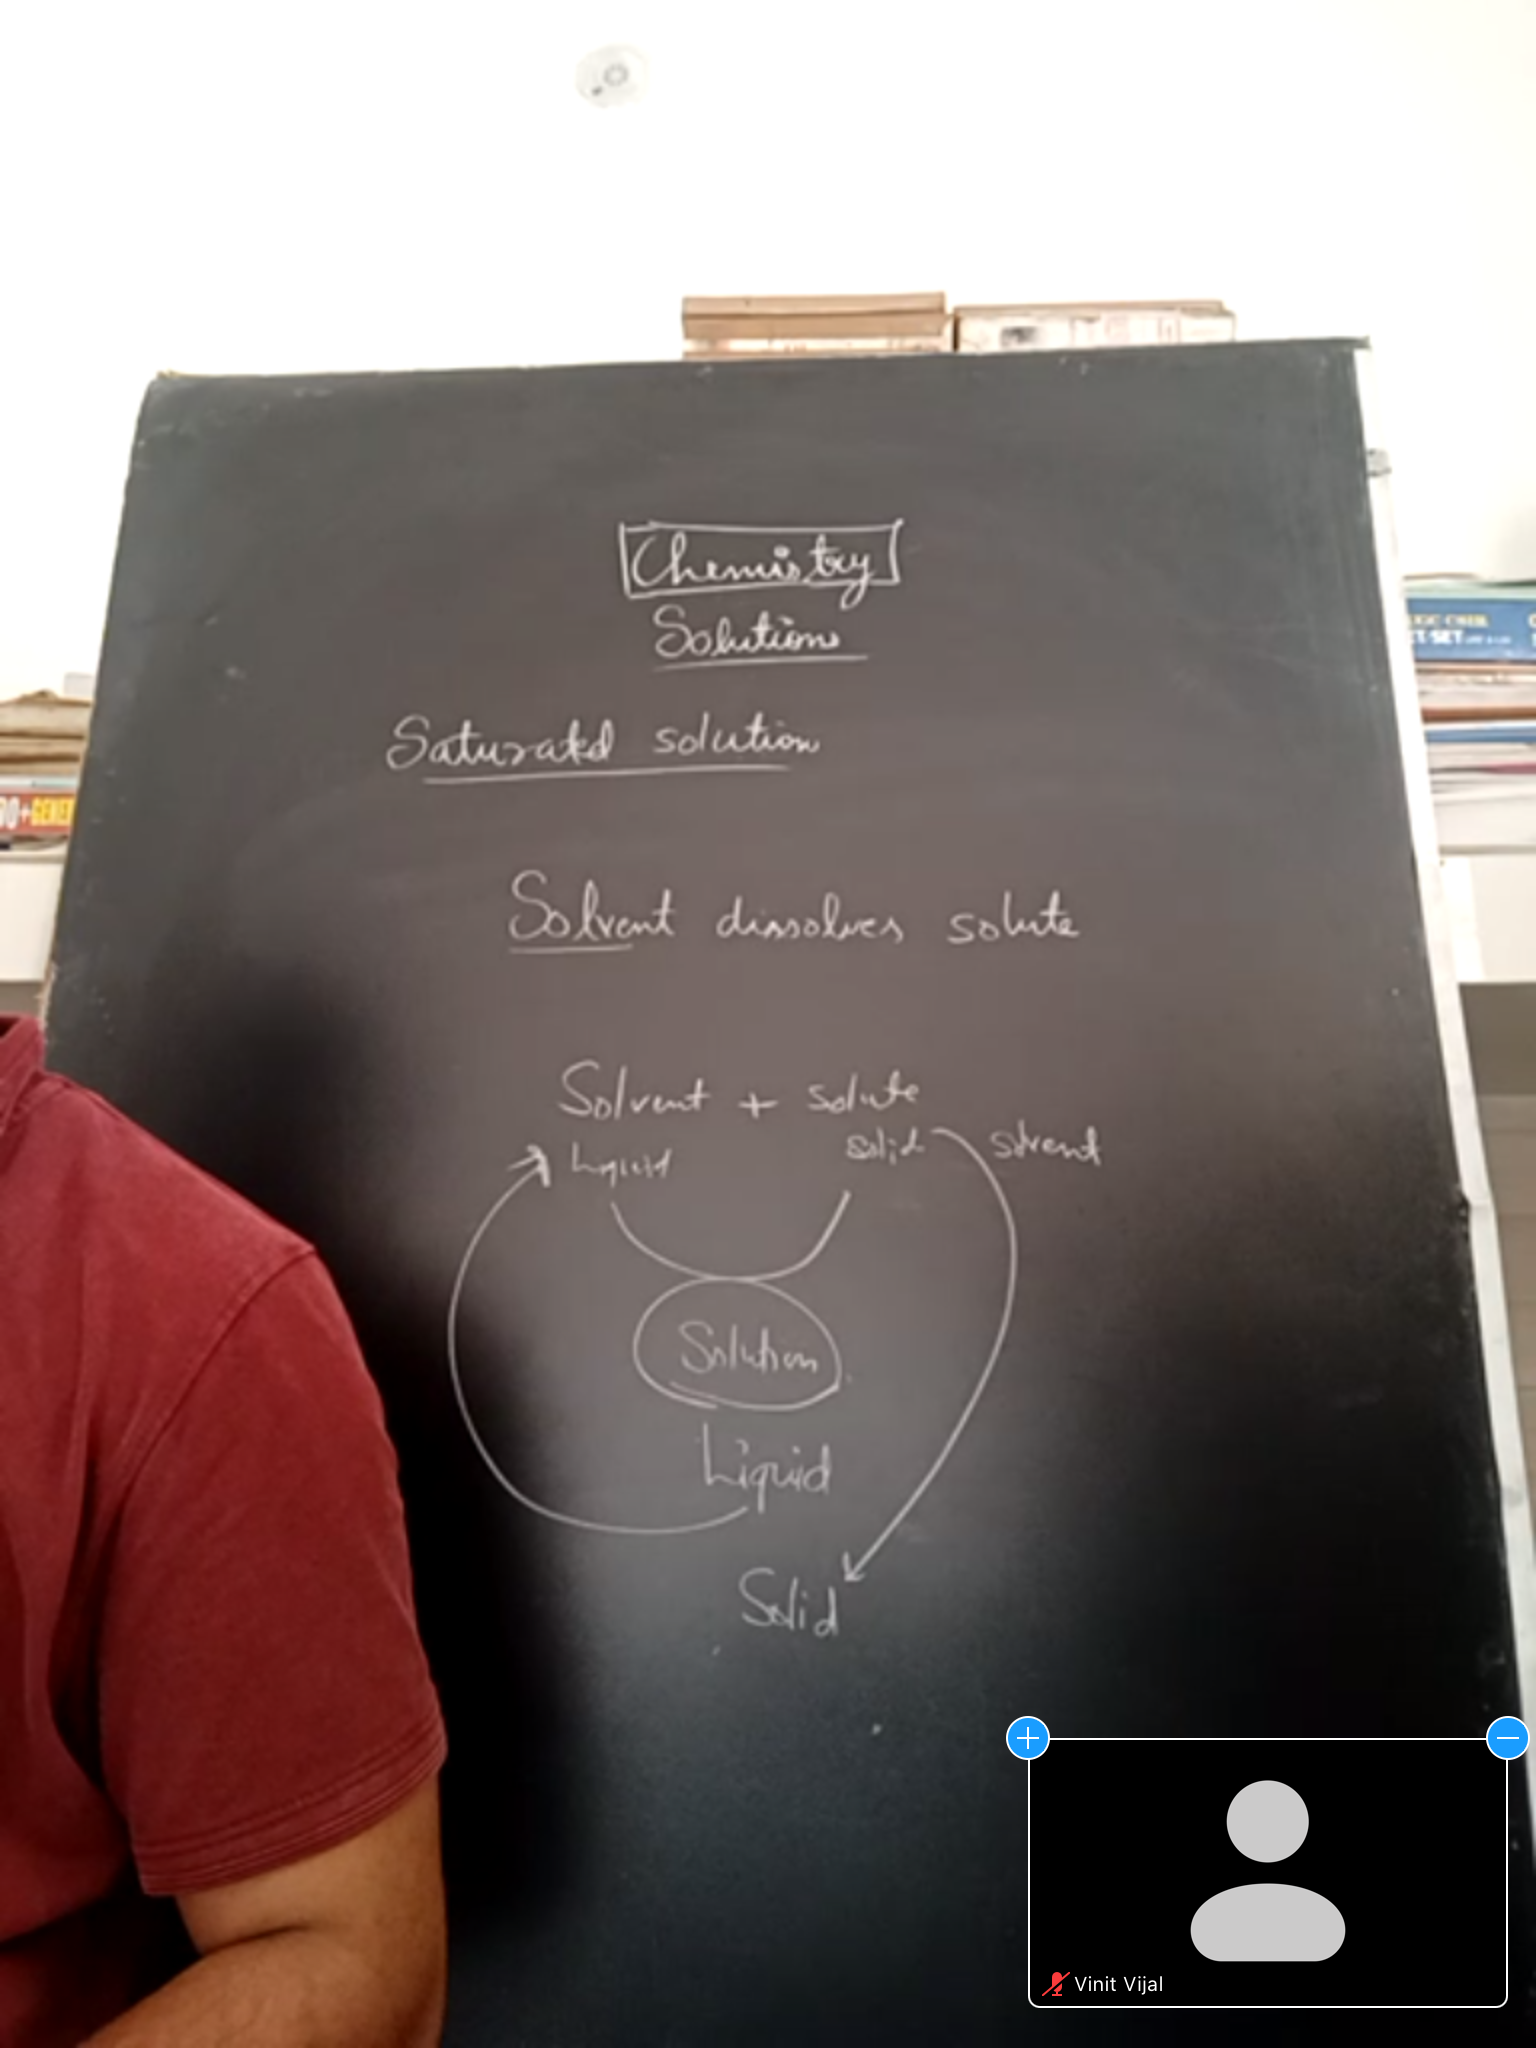 Chemistry
Solutions
Saturated solution
Solvent dissolves solute
Solvent + solute
Liquid solid solvent
Solution
Liquid
Solid
Vinit Vijal